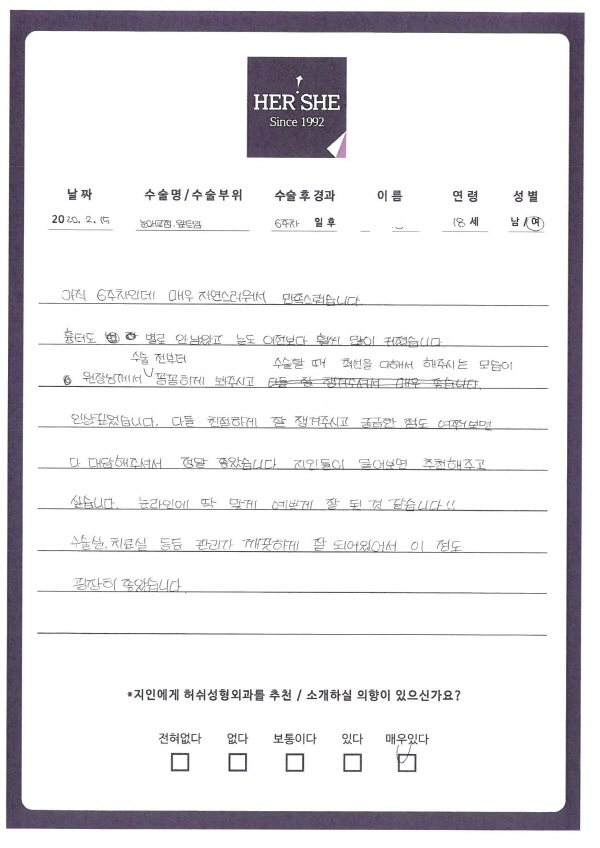 HER SHE
Since 1992
날짜 수술명/수술부위 수술 후 경과 이름 연령 성별
2020. 2. 15 눈매교정, 앞트임 6주차 일 후 18 세 남/여
아직 6주차인데 매우 자연스러워서 만족스럽습니다.
흉터도 별로 안남았고 눈도 이전보다 훨씬 많이 커졌습니다
수술 전부터 수술할 때 최선을 다해서 해주시는 모습이
원장님께서 꼼꼼하게 봐주시고 다들 잘 챙겨주셔서 매우 좋습니다.
인상깊었습니다. 다들 친절하게 잘 챙겨주시고 궁금한 점도 여쭤보면
다 대답해주셔서 정말 좋았습니다 지인들이 물어보면 추천해주고
싶습니다. 눈라인에 딱 맞게 예쁘게 잘 된 것 같습니다!!
수술실, 치료실 등등 관리가 깨끗하게 잘 되어있어서 이 점도
굉장히 좋았습니다.
*지인에게 허쉬성형외과를 추천 / 소개하실 의향이 있으신가요?
전혀없다 없다 보통이다 있다 매우있다